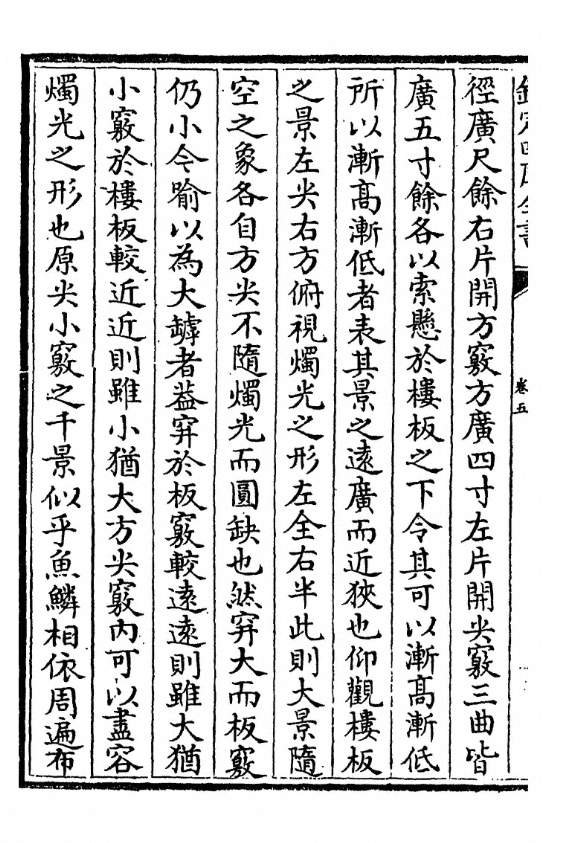 欽定四庫全書
卷五
徑廣尺餘右片開方竅方廣四寸左片開尖竅三曲皆
廣五寸餘各以索懸於樓板之下令其可以漸髙漸低
所以漸髙漸低者表其景之遠廣而近狹也仰觀樓板
之景左尖右方俯視燭光之形左全右半此則大景隨
空之象各自方尖不隨燭光而圓缺也然穽大而板竅
仍小今喻以為大罅者葢穽於板竅較逺逺則雖大猶
小竅於樓板較近近則雖小猶大方尖竅内可以盡容
燭光之形也原尖小竅之千景似乎魚鱗相依周遍布